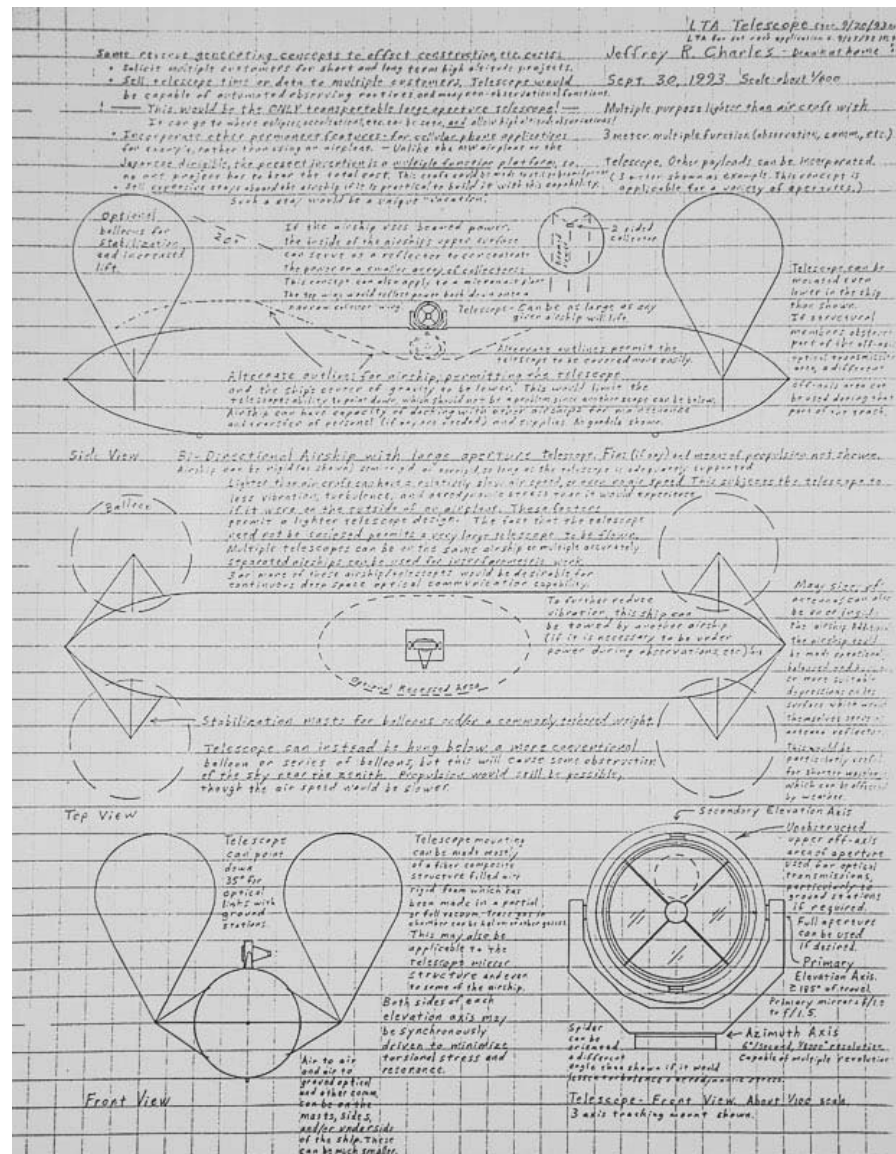 LTA Telescope 9/20/93
Jeffrey R. Charles - Drawn at home
Sept. 30, 1993 Scale: about 1/600
Multiple purpose lighter than air craft with
3 meter multiple function (observation, comm., etc.)
Telescope. Other payloads can be incorporated.
(3 meter shown as example. This concept is
applicable for a variety of apertures.)
Some revenue generating concepts to offset construction, etc. costs:
• Solicit multiple customers for short and long term high altitude projects.
• Sell telescope time or data to multiple customers. Telescope would
be capable of automated observing routines and many non-observational functions.
! — This would be the ONLY transportable large aperture telescope! —
It can go to where eclipses, occultations, etc. can be seen, and allow high altitude observations!
• Incorporate other permanent features - for cellular phone applications
for example, rather than using an airplane. - Unlike the MW airplane or the
Japanese dirigible, the present invention is a multiple function platform, so
no one project has to bear the total cost.
• Sell expensive stays aboard the airship if it is practical to build it with this capability.
Such a stay would be a unique vacation.
Optional
balloons for
stabilization
and increased
lift.
If the airship uses beamed power,
the inside of the airship's upper surface
can serve as a reflector to concentrate
the power on a smaller array of collectors.
This concept can also apply to a microwave plane.
The top wing would reflect power back down onto a
narrow collector wing.
2 sided
collector
Telescope - Can be as large as any
given airship will lift.
Alternate outlines permit the
telescope to be covered more easily.
Telescope can be
mounted even
lower in the ship
than shown.
If structural
members obstruct
part of the off-axis
optical transmission
area, a different
off-axis area can
be used during that
part of the track.
Alternate outline for airship, permitting the telescope
and the ship's center of gravity to be lower. This would limit the
telescope's ability to point down, which should not be a problem since another scope can be below.
Airship can have capacity of docking with other airships for maintenance
and transfer of personel (if any are needed) and supplies. No gondola shown.
Side View
Bi-Directional Airship with large aperture telescope. Fins (if any) and means of propulsion not shown.
Airship can be rigid (as shown) semi-rigid, or nonrigid, so long as the telescope is adequately supported
Lighter than air craft can have a relatively slow air speed, or even no air speed. This subjects the telescope to
less vibration, turbulence, and aerodynamic stress than it would experience
if it were on the outside of an airplane. These factors
permit a lighter telescope design. The fact that the telescope
need not be enclosed permits a very large telescope to be flown.
Multiple telescopes can be on the same airship or multiple accurately
separated airships can be used for interferometric work.
3 or more of these airship/telescopes would be desirable for
continuous deep space optical communication capability.
Balloon
To further reduce
vibration, this ship can
be towed by another airship
(if it is necessary to be under
power during observations, etc.)
Optional Recessed Area
Many sizes of
antennas can also
be on or in
the airship.
Stabilization masts for balloons and/or a commonly tethered weight.
Telescope can instead be hung below a more conventional
balloon or series of balloons, but this will cause some obstruction
of the sky near the zenith. Propulsion would still be possible,
though the air speed would be slower.
This would be
particularly useful
for shorter
which can be affected
by weather.
Top View
Telescope
can point
down
35° for
optical
links with
ground
stations.
Telescope mounting
can be made mostly
of a fiber composite
structure filled with
rigid foam which has
been made in a partial
or full vacuum.
This may also be
applicable to the
telescope mirror
structure and even
to some of the airship.
Both sides of each
elevation axis may
be synchronously
driven to minimize
torsional stress and
resonance.
Secondary Elevation Axis
Unobstructed
upper off-axis
area of aperture
used for optical
transmissions,
particularly to
ground stations
if required.
Full aperture
can be used
if desired.
Primary
Elevation Axis.
≥ 185° of travel.
Azimuth Axis
Capable of multiple revolutions
Spider
can be
oriented
a different
angle than shown if it would
lessen turbulence & aerodynamic stress.
Front View
Air to air
and air to
ground optical
and other comm.
can be on the
masts, sides,
and/or underside
of the ship. These
can be much smaller.
Telescope - Front View. About 1/100 scale.
3 axis tracking mount shown.